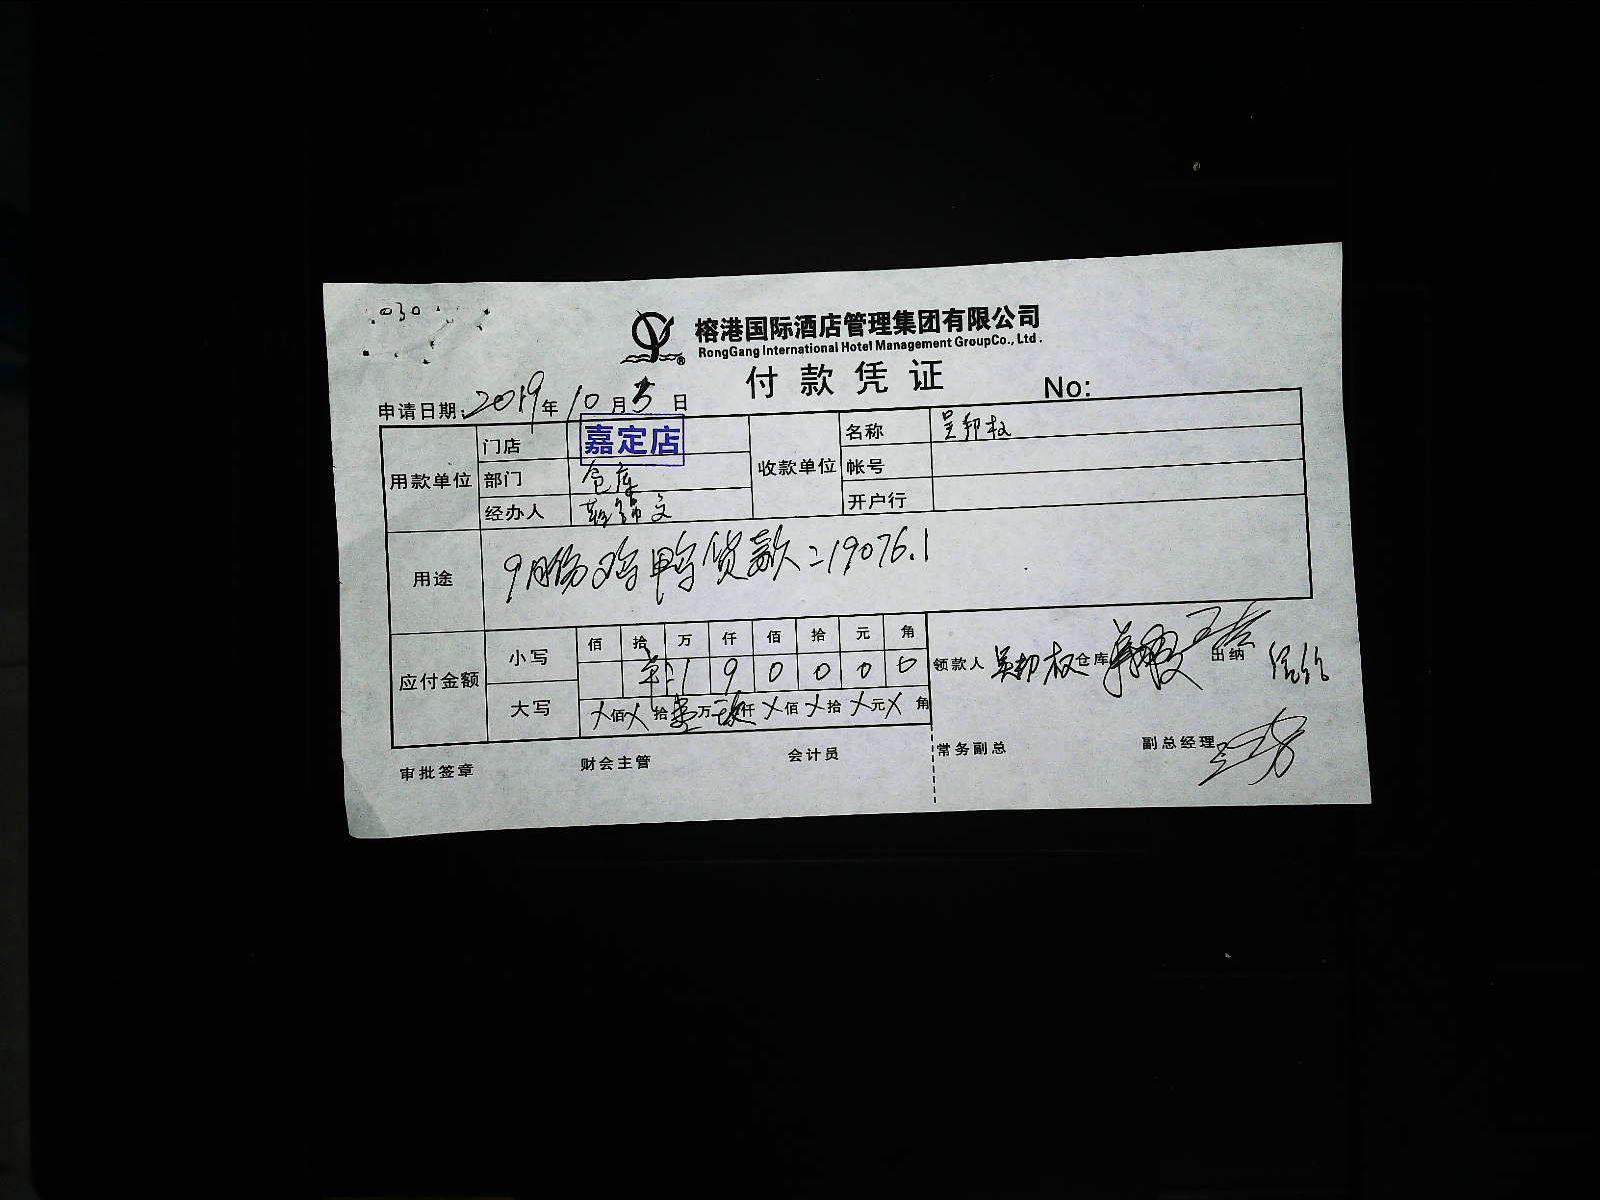 030
榕港国际酒店管理集团有限公司
RongGang International Hotel Management GroupCo., Ltd.
付款凭证 No:
申请日期: 2019年10月5日
用款单位 门店 嘉定店 收款单位 名称 吴邦权
部门 仓库 帐号
经办人 锦文 开户行
用途 9月份鸡鸭货款=19076.1
应付金额 小写 佰 拾 万 仟 佰 拾 元 角
1 9 0 0 0 0
大写 ㄨ佰ㄨ拾壹万玖仟ㄨ佰ㄨ拾ㄨ元ㄨ角
领款人 吴邦权 仓库 出纳
审批签章 财会主管 会计员 常务副总 副总经理